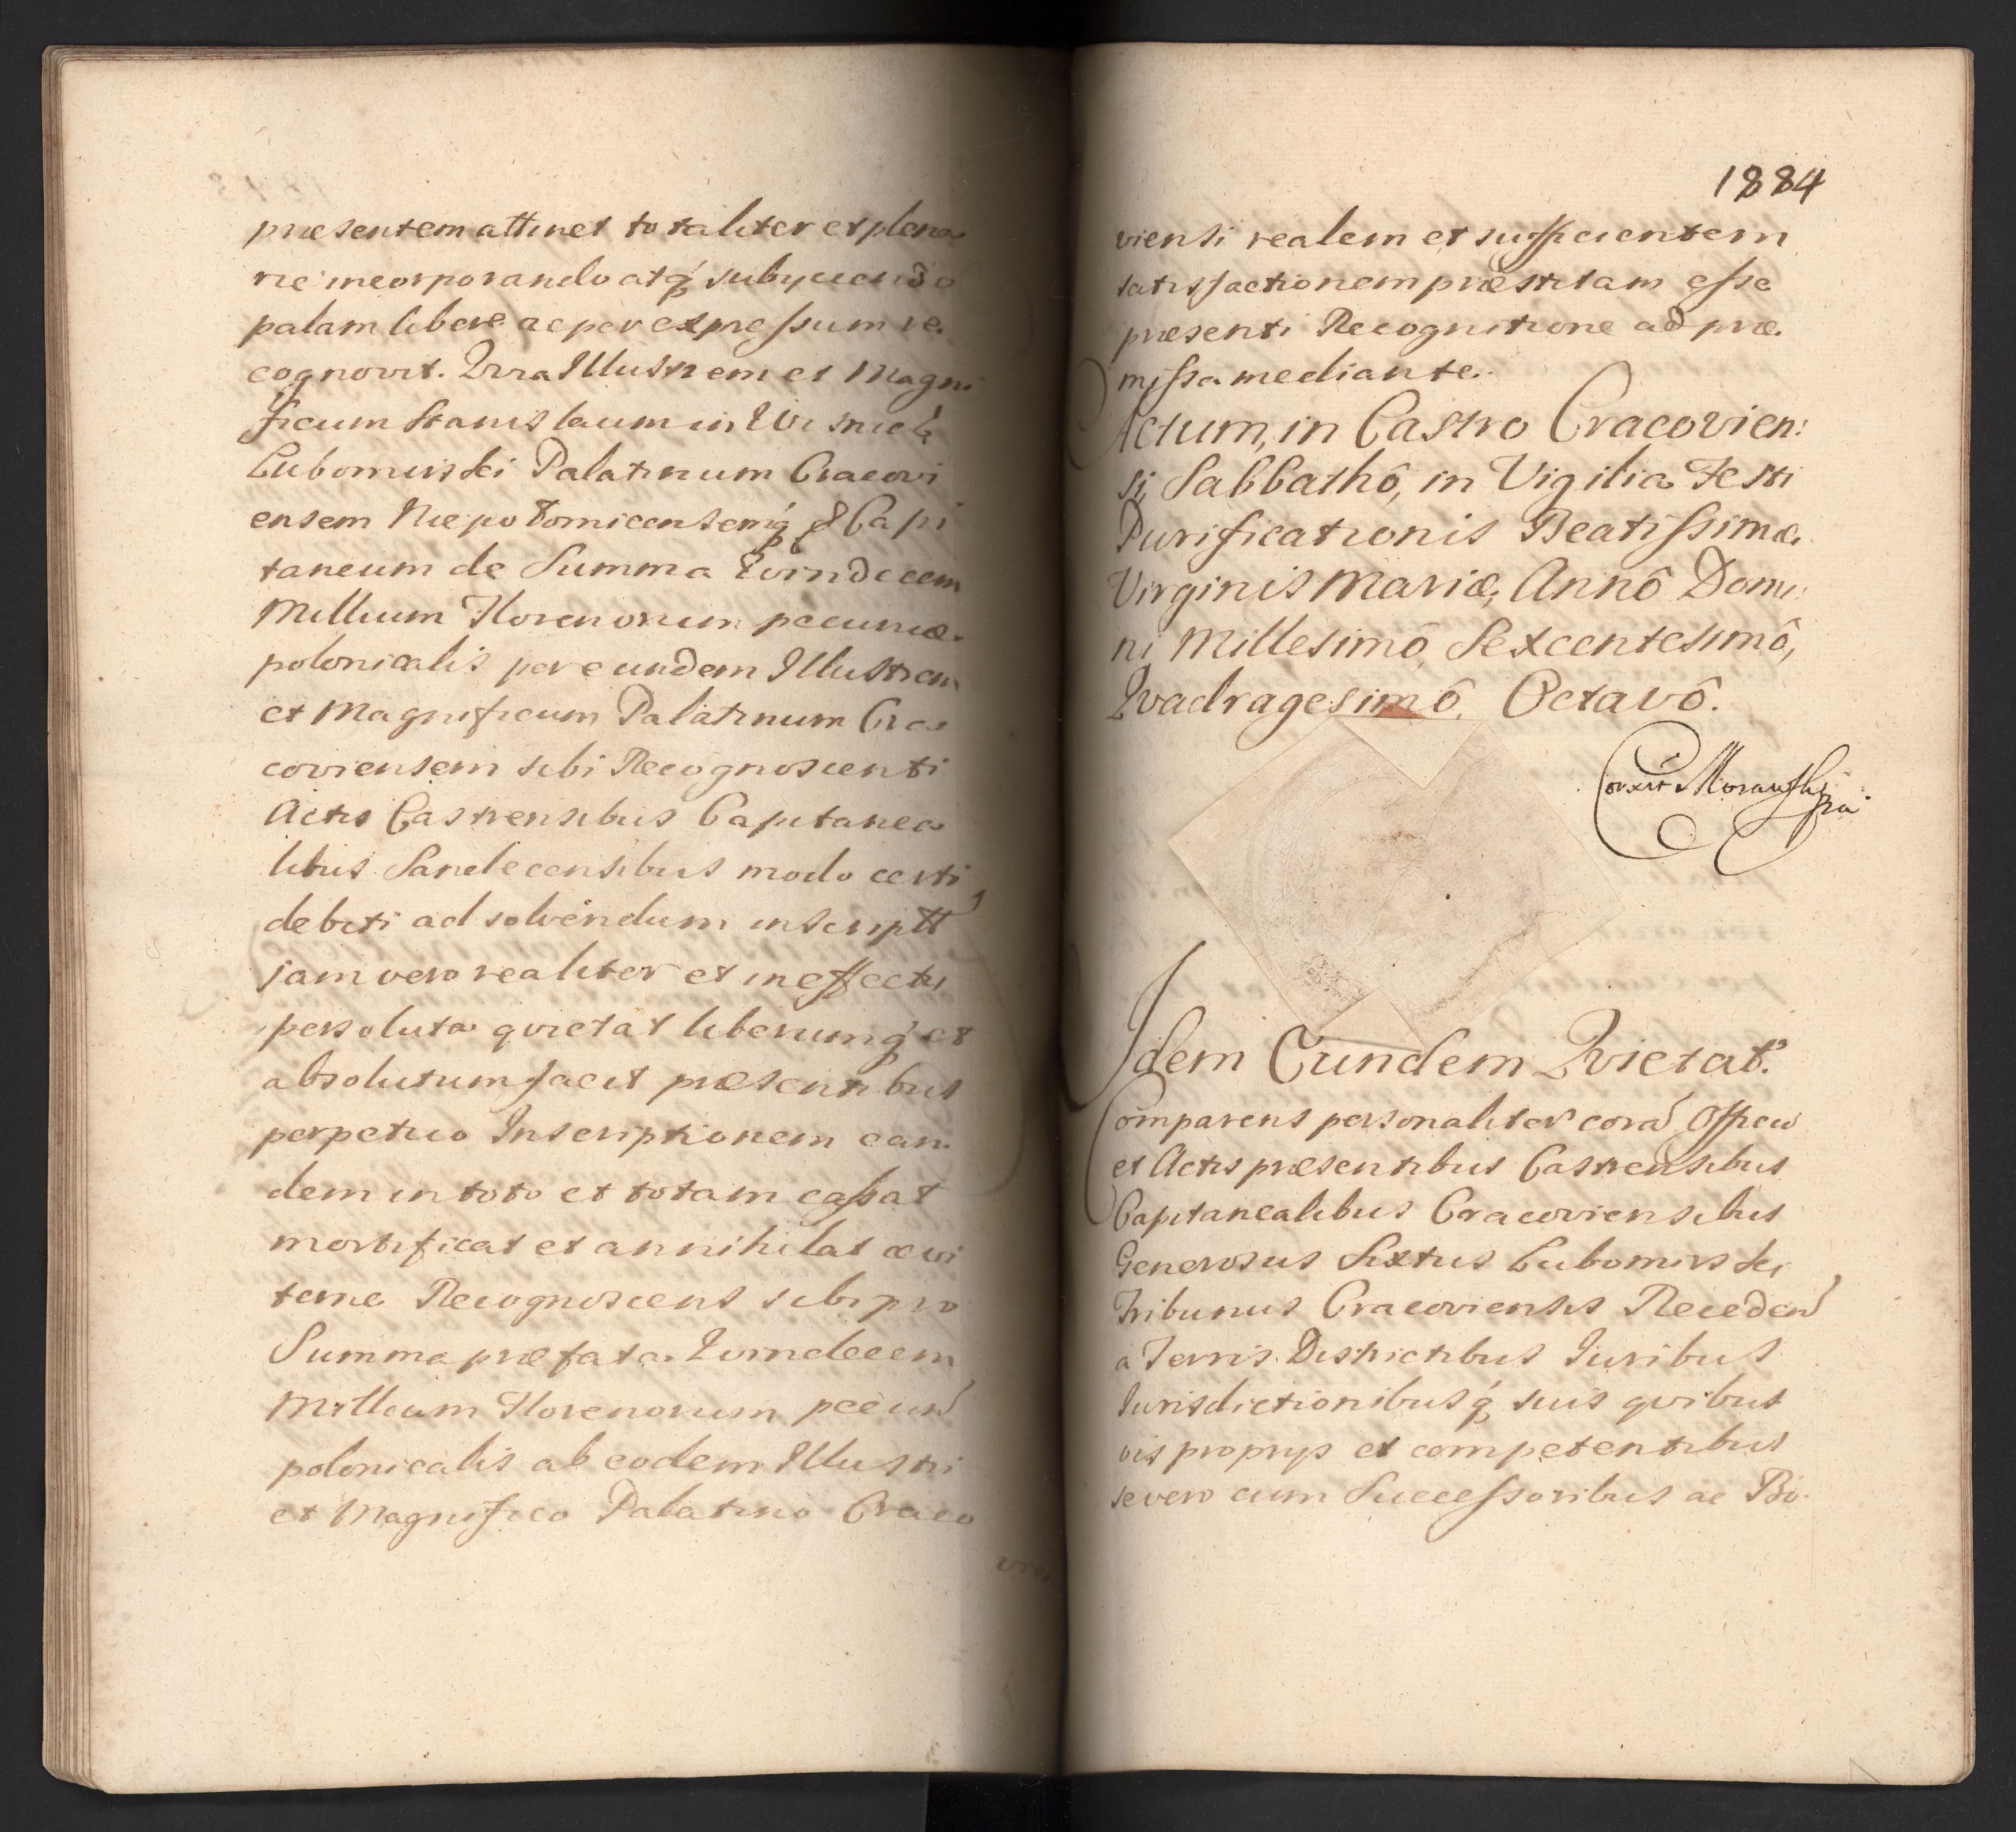 præsentem attinet totaliter et plena
rie incorporando atq́ subyciendo
palam libere ac per expressum re
cognovit. Qvia Illustrem et Magni
ficum Stanislaum in Wisnicz
Lubomirski Palatinum Cracovi
ensem Niepołomicensemq́ & Capi
taneum de Summa Qvindecem
Millium Florenorum pecuniæ
polonicalis per eundem Illustrem
et Magnificum Palatinum Cra
coviensem sibi Recognoscenti
Actis Castrensibus Capitanea
libus Sandecensibus modo certi
debiti ad solvendum inscriptt
jam vero realiter et in effectu
persoluta qvietat liberumq́ et
absolutum facit præsentibus
perpetuo Inscriptionem ean
dem in toto et totam cassat
mortificat et annihilat ævi
terne Recognoscens sibi pro
Summa præfata Qvindecem
Millium Florenorum pecun
polonicalis ab eodem Illustri
et Magnifico Palatino Craco
vien
1884
viensi realem et sufficientem
satisfactionem præstitam esse
præsenti Recognitione ad præ.
missa mediante.
Actum, in Castro Cracovien:
si, Sabbathô, in Vigilia Festi
Purificationis Beatissimæ
Virginis Mariæ, Annô Domi:
ni Millesimô Sexcentesimô,
Qvadragesimô, Octavô.
Correxit
Idem Eundem Qvietat.
Comparens personaliter corã Officio
et Actis præsentibus Castrensibus
Capitanealibus Cracoviensibus
Generosus Sixtus Lubomirski
Tribunus Cracoviensis Receden
a Terris Districtibus Iuribus
Iurisdictionibusq́ suis qvibus
vis propryis et competentibus
se vero cum Successoribus ac Bo.